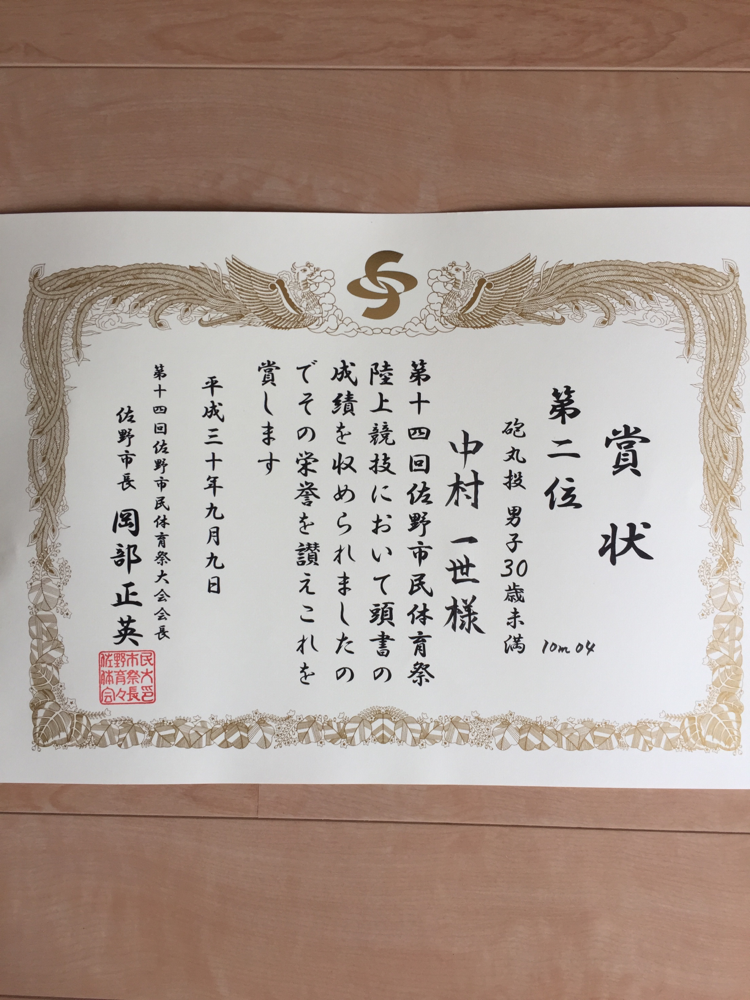 賞状
第二位
10m04
砲丸投 男子30歳未満
中村一世様
第十四回佐野市民体育祭
陸上競技において頭書の
成績を収められましたの
でその栄誉を讃えこれを
賞します
平成三十年九月九日
第十四回佐野市民体育祭大会会長
佐野市長 岡部正英